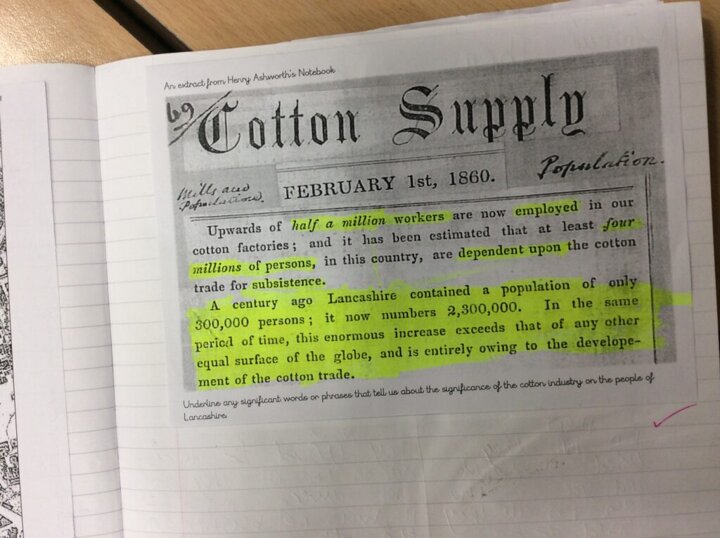 An extract from Henry Ashworth's Notebook
69
Cotton Supply
Mills and
Population.
FEBRUARY 1st, 1860.
Population.
Upwards of half a million workers are now employed in our
cotton factories; and it has been estimated that at least four
millions of persons, in this country, are dependent upon the cotton
trade for subsistence.
A century ago Lancashire contained a population of only
300,000 persons; it now numbers 2,300,000. In the same
period of time, this enormous increase exceeds that of any other
equal surface of the globe, and is entirely owing to the develope-
ment of the cotton trade.
Underline any significant words or phrases that tell us about the significance of the cotton industry on the people of
Lancashire